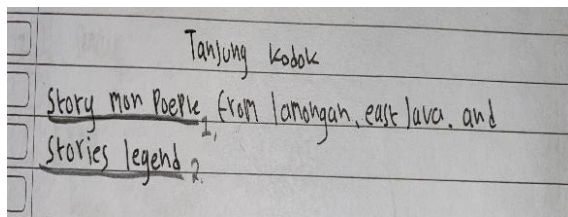 Tanjung Kodok
Story mon Poeple 1. from lamongan, east Java. and
Stories legend 2.